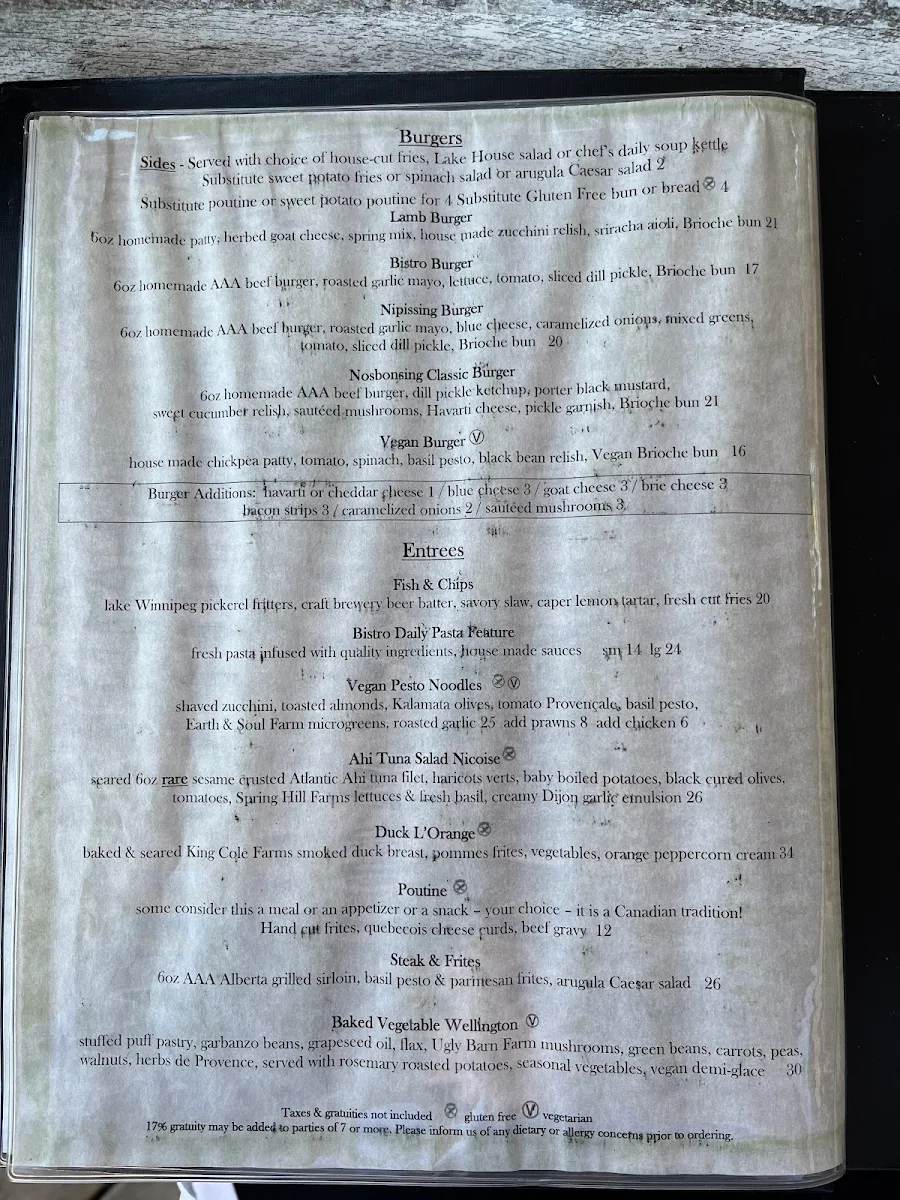 Burgers
Sides - Served with choice of house-cut fries, Lake House salad or chef's daily soup kettle
Substitute sweet potato fries or spinach salad or arugula Caesar salad 2
Substitute poutine or sweet potato poutine for 4 Substitute Gluten Free bun or bread 4
Lamb Burger
6oz homemade patty, herbed goat cheese, spring mix, house made zucchini relish, sriracha aioli, Brioche bun 21
Bistro Burger
6oz homemade AAA beef burger, roasted garlic mayo, lettuce, tomato, sliced dill pickle, Brioche bun 17
Nipissing Burger
6oz homemade AAA beef burger, roasted garlic mayo, blue cheese, caramelized onions, mixed greens,
tomato, sliced dill pickle, Brioche bun 20
Nosbonsing Classic Burger
6oz homemade AAA beef burger, dill pickle ketchup, porter black mustard,
sweet cucumber relish, sautéed mushrooms, Havarti cheese, pickle garnish, Brioche bun 21
Vegan Burger V
house made chickpea patty, tomato, spinach, basil pesto, black bean relish, Vegan Brioche bun 16
Burger Additions: havarti or cheddar cheese 1 / blue cheese 3 / goat cheese 3 / brie cheese 3
bacon strips 3 / caramelized onions 2 / sautéed mushrooms 3
Entrees
Fish & Chips
lake Winnipeg pickerel fritters, craft brewery beer batter, savory slaw, caper lemon tartar, fresh cut fries 20
Bistro Daily Pasta Feature
fresh pasta infused with quality ingredients, house made sauces sm 14 lg 24
Vegan Pesto Noodles V
shaved zucchini, toasted almonds, Kalamata olives, tomato Provençale, basil pesto,
Earth & Soul Farm microgreens, roasted garlic 25 add prawns 8 add chicken 6
Ahi Tuna Salad Nicoise
seared 6oz rare sesame crusted Atlantic Ahi tuna filet, haricots verts, baby boiled potatoes, black cured olives,
tomatoes, Spring Hill Farms lettuces & fresh basil, creamy Dijon garlic emulsion 26
Duck L'Orange
baked & seared King Cole Farms smoked duck breast, pommes frites, vegetables, orange peppercorn cream 34
Poutine
some consider this a meal or an appetizer or a snack – your choice – it is a Canadian tradition!
Hand cut frites, quebecois cheese curds, beef gravy 12
Steak & Frites
6oz AAA Alberta grilled sirloin, basil pesto & parmesan frites, arugula Caesar salad 26
Baked Vegetable Wellington V
stuffed puff pastry, garbanzo beans, grapeseed oil, flax, Ugly Barn Farm mushrooms, green beans, carrots, peas,
walnuts, herbs de Provence, served with rosemary roasted potatoes, seasonal vegetables, vegan demi-glace 30
Taxes & gratuities not included gluten free V vegetarian
17% gratuity may be added to parties of 7 or more. Please inform us of any dietary or allergy concerns prior to ordering.